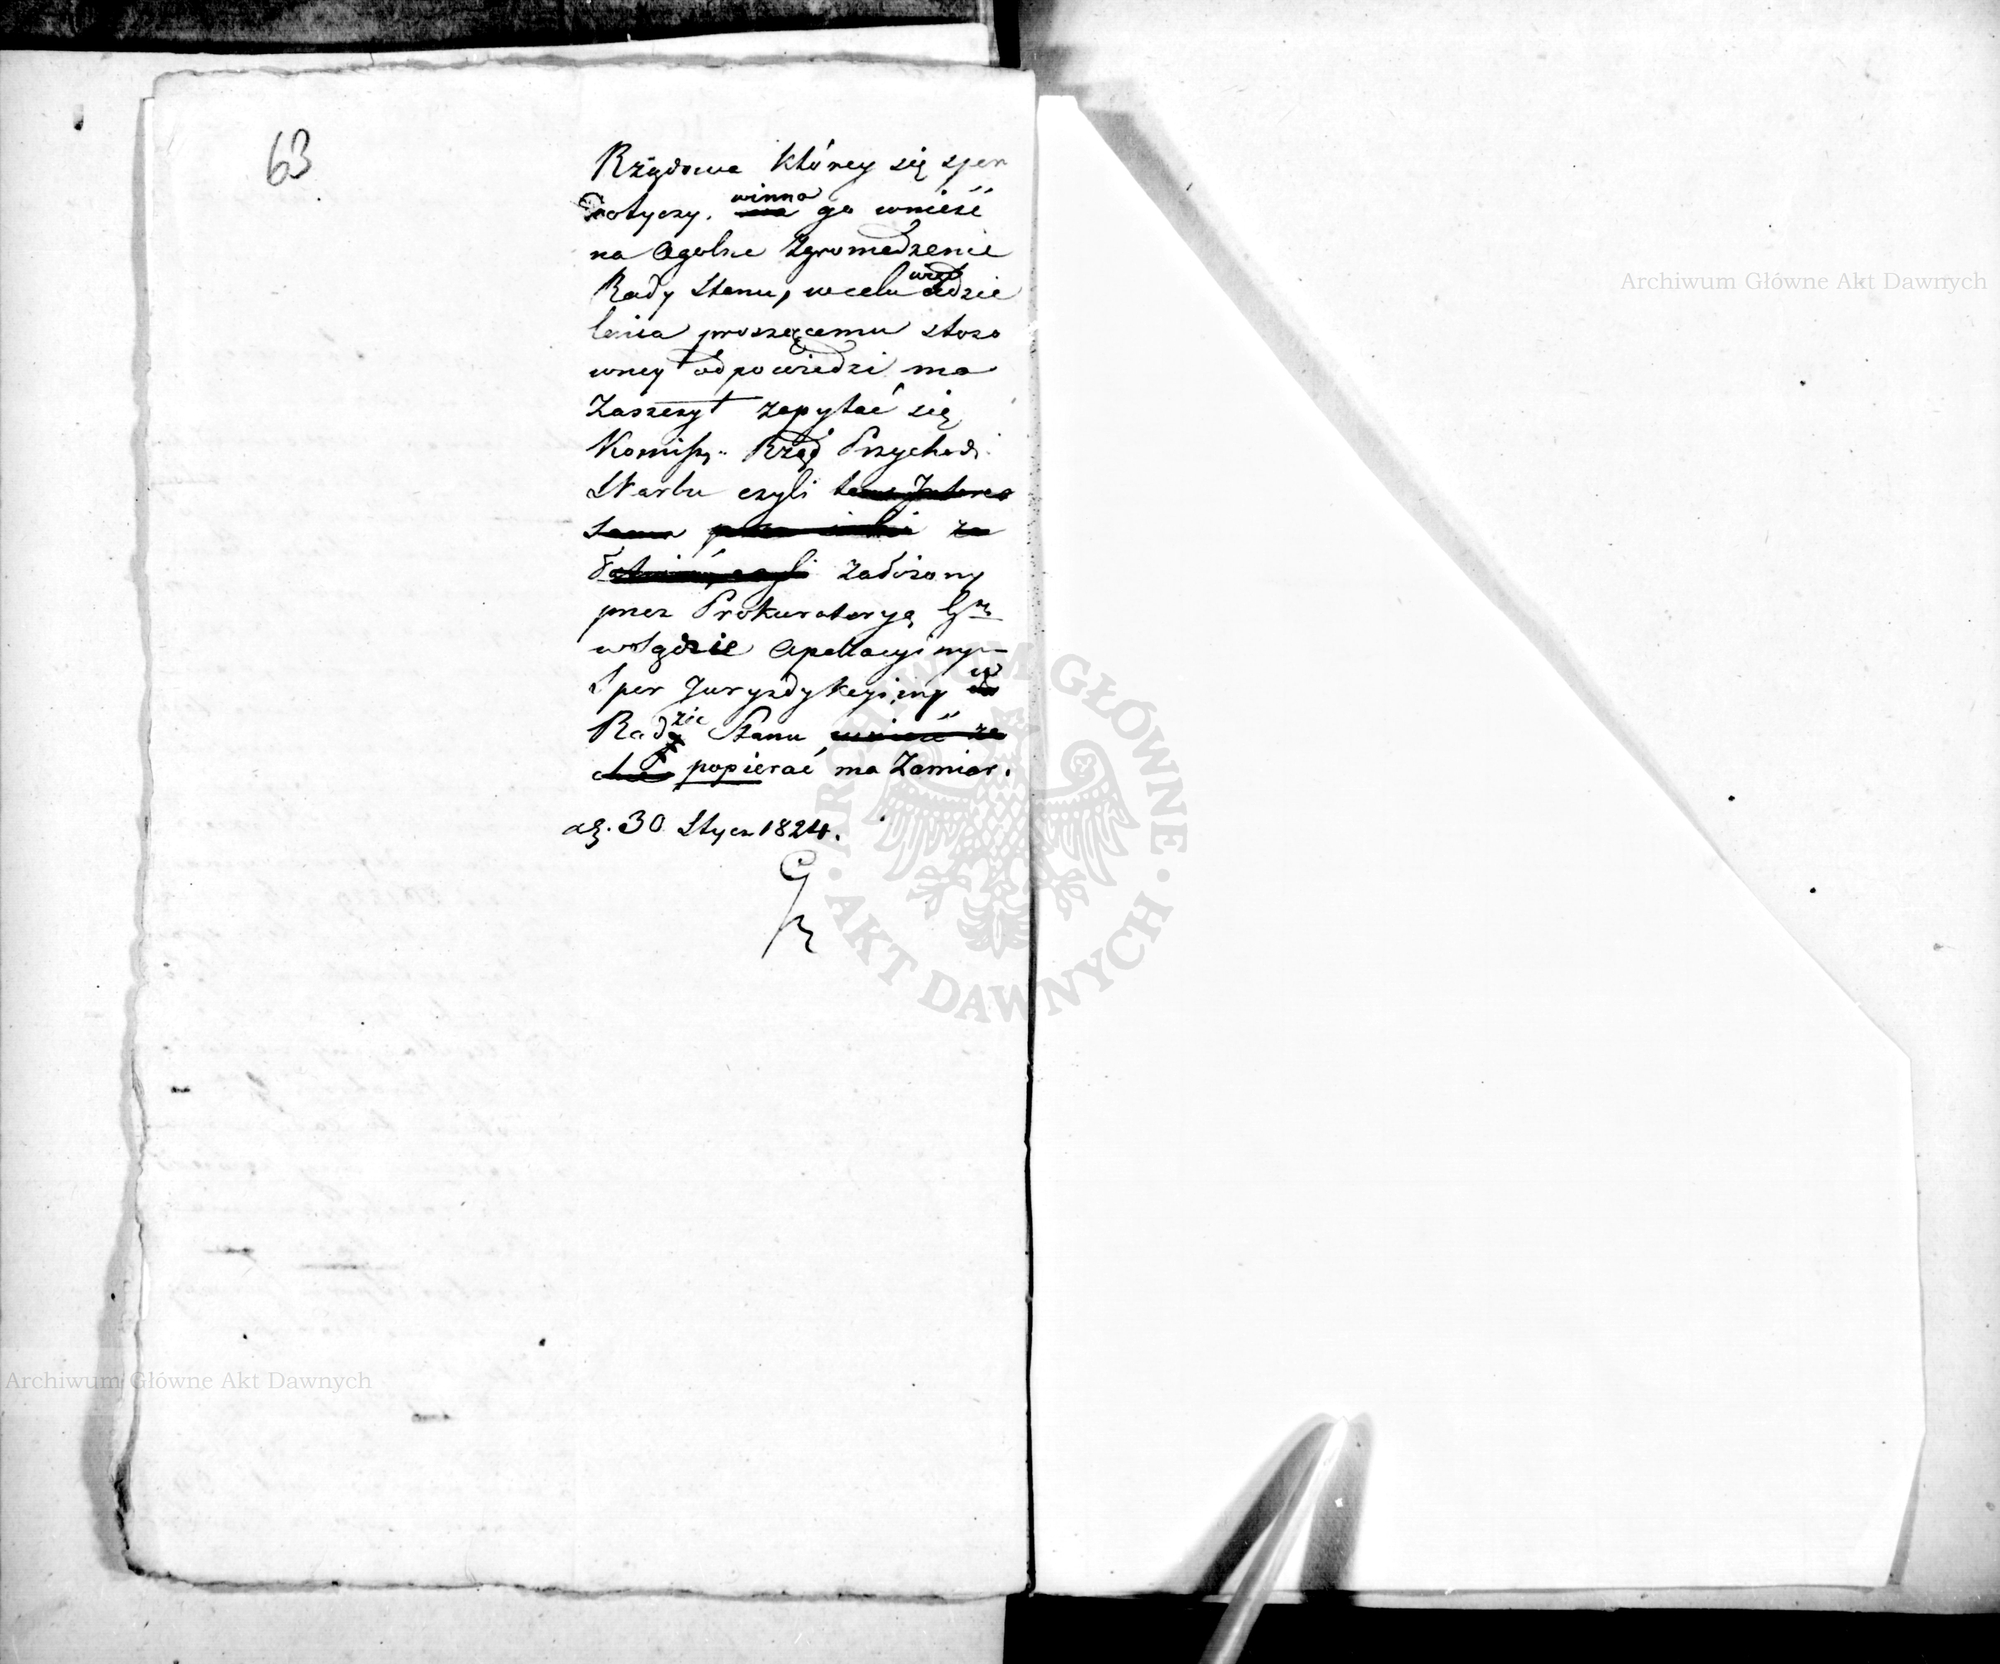 63
Rządowa którey się spor
dotyczy, winna go wnieść
na Ogolne Zgromadzenie
Rady Stanu, w celu więc udzie
lenia proszącemu stoso
wney odpowiedzi ma
Zaszczyt zapytać się
Kommissyi Rząd Przychod:
Skarbu czyli
założony
przez Prokuratoryą
w Sądzie Apellacyinym
Spor Jurysdykcyiny w
Radzie Stanu
popierać ma Zamiar.
30 Stycz 1824.
Archiwum Główne Akt Dawnych
Archiwum Główne Akt Dawnych
ARCHIWUM GŁÓWNE
AKT DAWNYCH